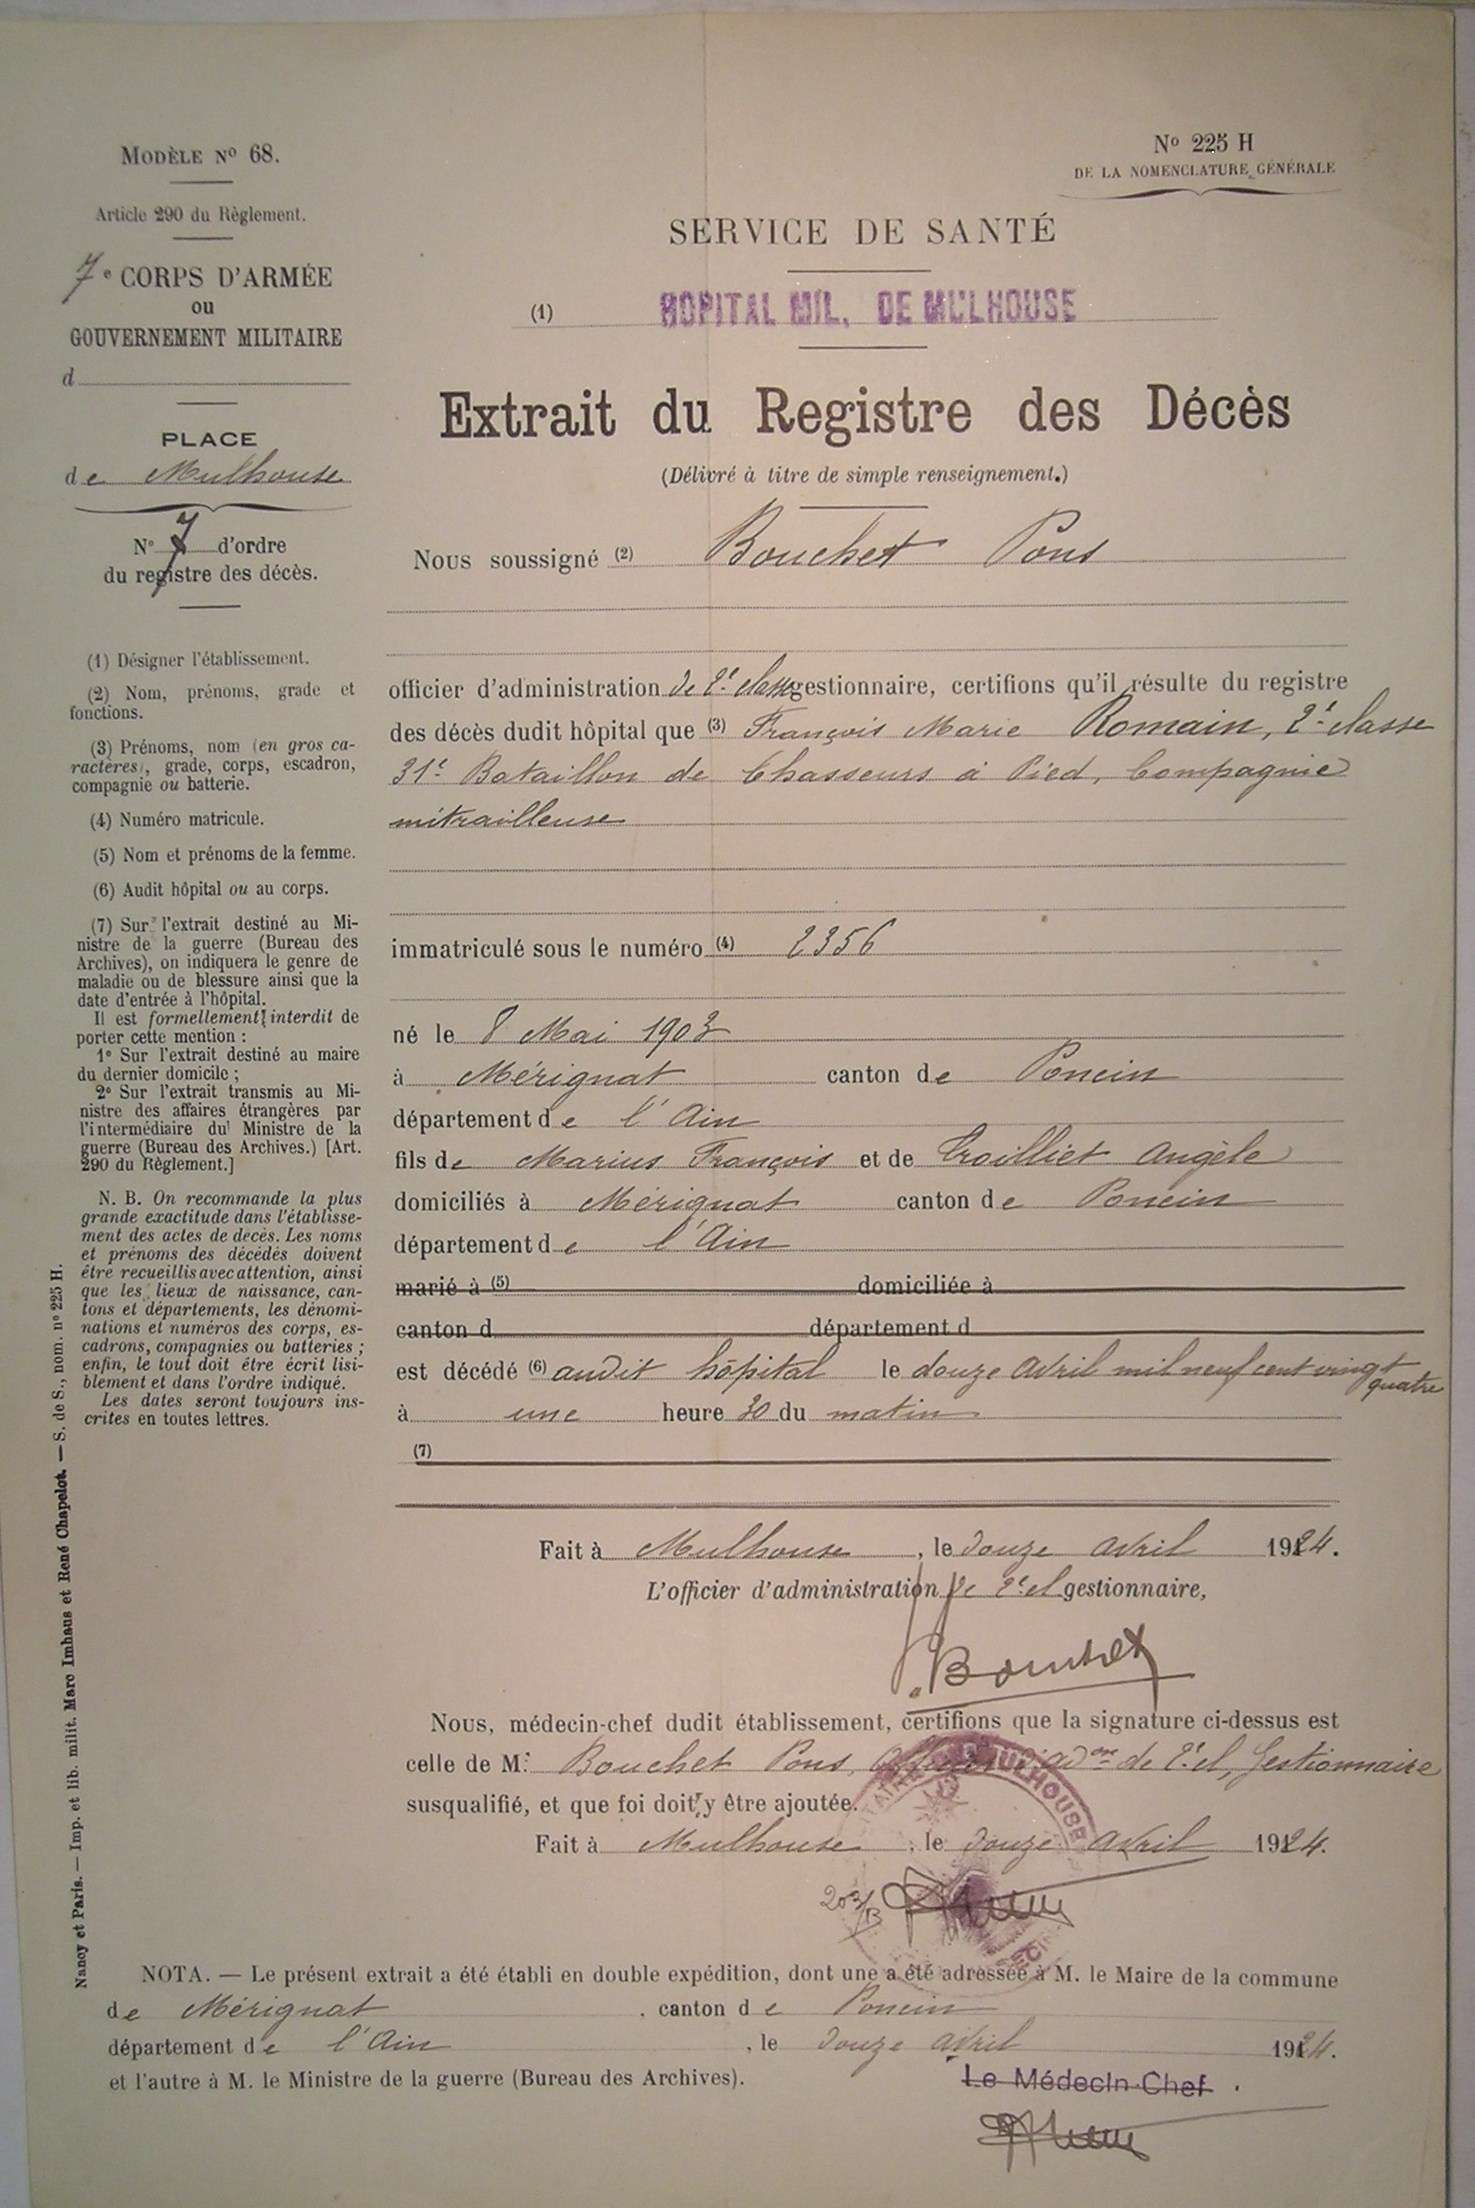 MODÈLE Nº 68.
Article 290 du Règlement.
7e CORPS D'ARMÉE
ou
GOUVERNEMENT MILITAIRE
d
PLACE
de Mulhouse
Nº 7 d'ordre
du registre des décès.
(1) Désigner l'établissement.
(2) Nom, prénoms, grade et
fonctions.
(3) Prénoms, nom (en gros ca-
ractères), grade, corps, escadron,
compagnie ou batterie.
(4) Numéro matricule.
(5) Nom et prénoms de la femme.
(6) Audit hôpital ou au corps.
(7) Sur l'extrait destiné au Mi-
nistre de la guerre (Bureau des
Archives), on indiquera le genre de
maladie ou de blessure ainsi que la
date d'entrée à l'hôpital.
Il est formellement interdit de
porter cette mention :
1º Sur l'extrait destiné au maire
du dernier domicile ;
2º Sur l'extrait transmis au Mi-
nistre des affaires étrangères par
l'intermédiaire du Ministre de la
guerre (Bureau des Archives.) [Art.
290 du Règlement.]
N. B. On recommande la plus
grande exactitude dans l'établisse-
ment des actes de décès. Les noms
et prénoms des décédés doivent
être recueillis avec attention, ainsi
que les lieux de naissance, can-
tons et départements, les dénomi-
nations et numéros des corps, es-
cadrons, compagnies ou batteries ;
enfin, le tout doit être écrit lisi-
blement et dans l'ordre indiqué.
Les dates seront toujours ins-
crites en toutes lettres.
Nancy et Paris. — Imp. et lib. milit. Marc Imhaus et René Chapelot. — S. de S., nom. nº 225 H.
Nº 225 H
DE LA NOMENCLATURE GÉNÉRALE
SERVICE DE SANTÉ
(1) HOPITAL MIL. DE MULHOUSE
Extrait du Registre des Décès
(Délivré à titre de simple renseignement.)
Nous soussigné (2) Bouchet Pons
officier d'administration de 2e classe gestionnaire, certifions qu'il résulte du registre
des décès dudit hôpital que (3) François Marie Romain, 2e classe
31e Bataillon de Chasseurs à Pied, Compagnie
mitrailleuse
immatriculé sous le numéro (4) 2356
né le 8 Mai 1903
à Mérignat canton de Poncin
département de l'Ain
fils de Marius François et de Troilliet Angèle
domiciliés à Mérignat canton de Poncin
département de l'Ain
marié à (5) domiciliée à
canton d département d
est décédé (6) audit hôpital le douze avril mil neuf cent vingt quatre
à une heure 30 du matin
(7)
Fait à Mulhouse, le douze avril 1924.
L'officier d'administration de 2e cl gestionnaire,
P. Bouchet
Nous, médecin-chef dudit établissement, certifions que la signature ci-dessus est
celle de Mr Bouchet Pons, Officier d'adon de 2e cl, Gestionnaire
susqualifié, et que foi doit y être ajoutée.
Fait à Mulhouse, le douze avril 1924.
203/B
NOTA. — Le présent extrait a été établi en double expédition, dont une a été adressée à M. le Maire de la commune
de Mérignat, canton de Poncin
département de l'Ain, le douze avril 1924.
et l'autre à M. le Ministre de la guerre (Bureau des Archives).
Le Médecin-Chef